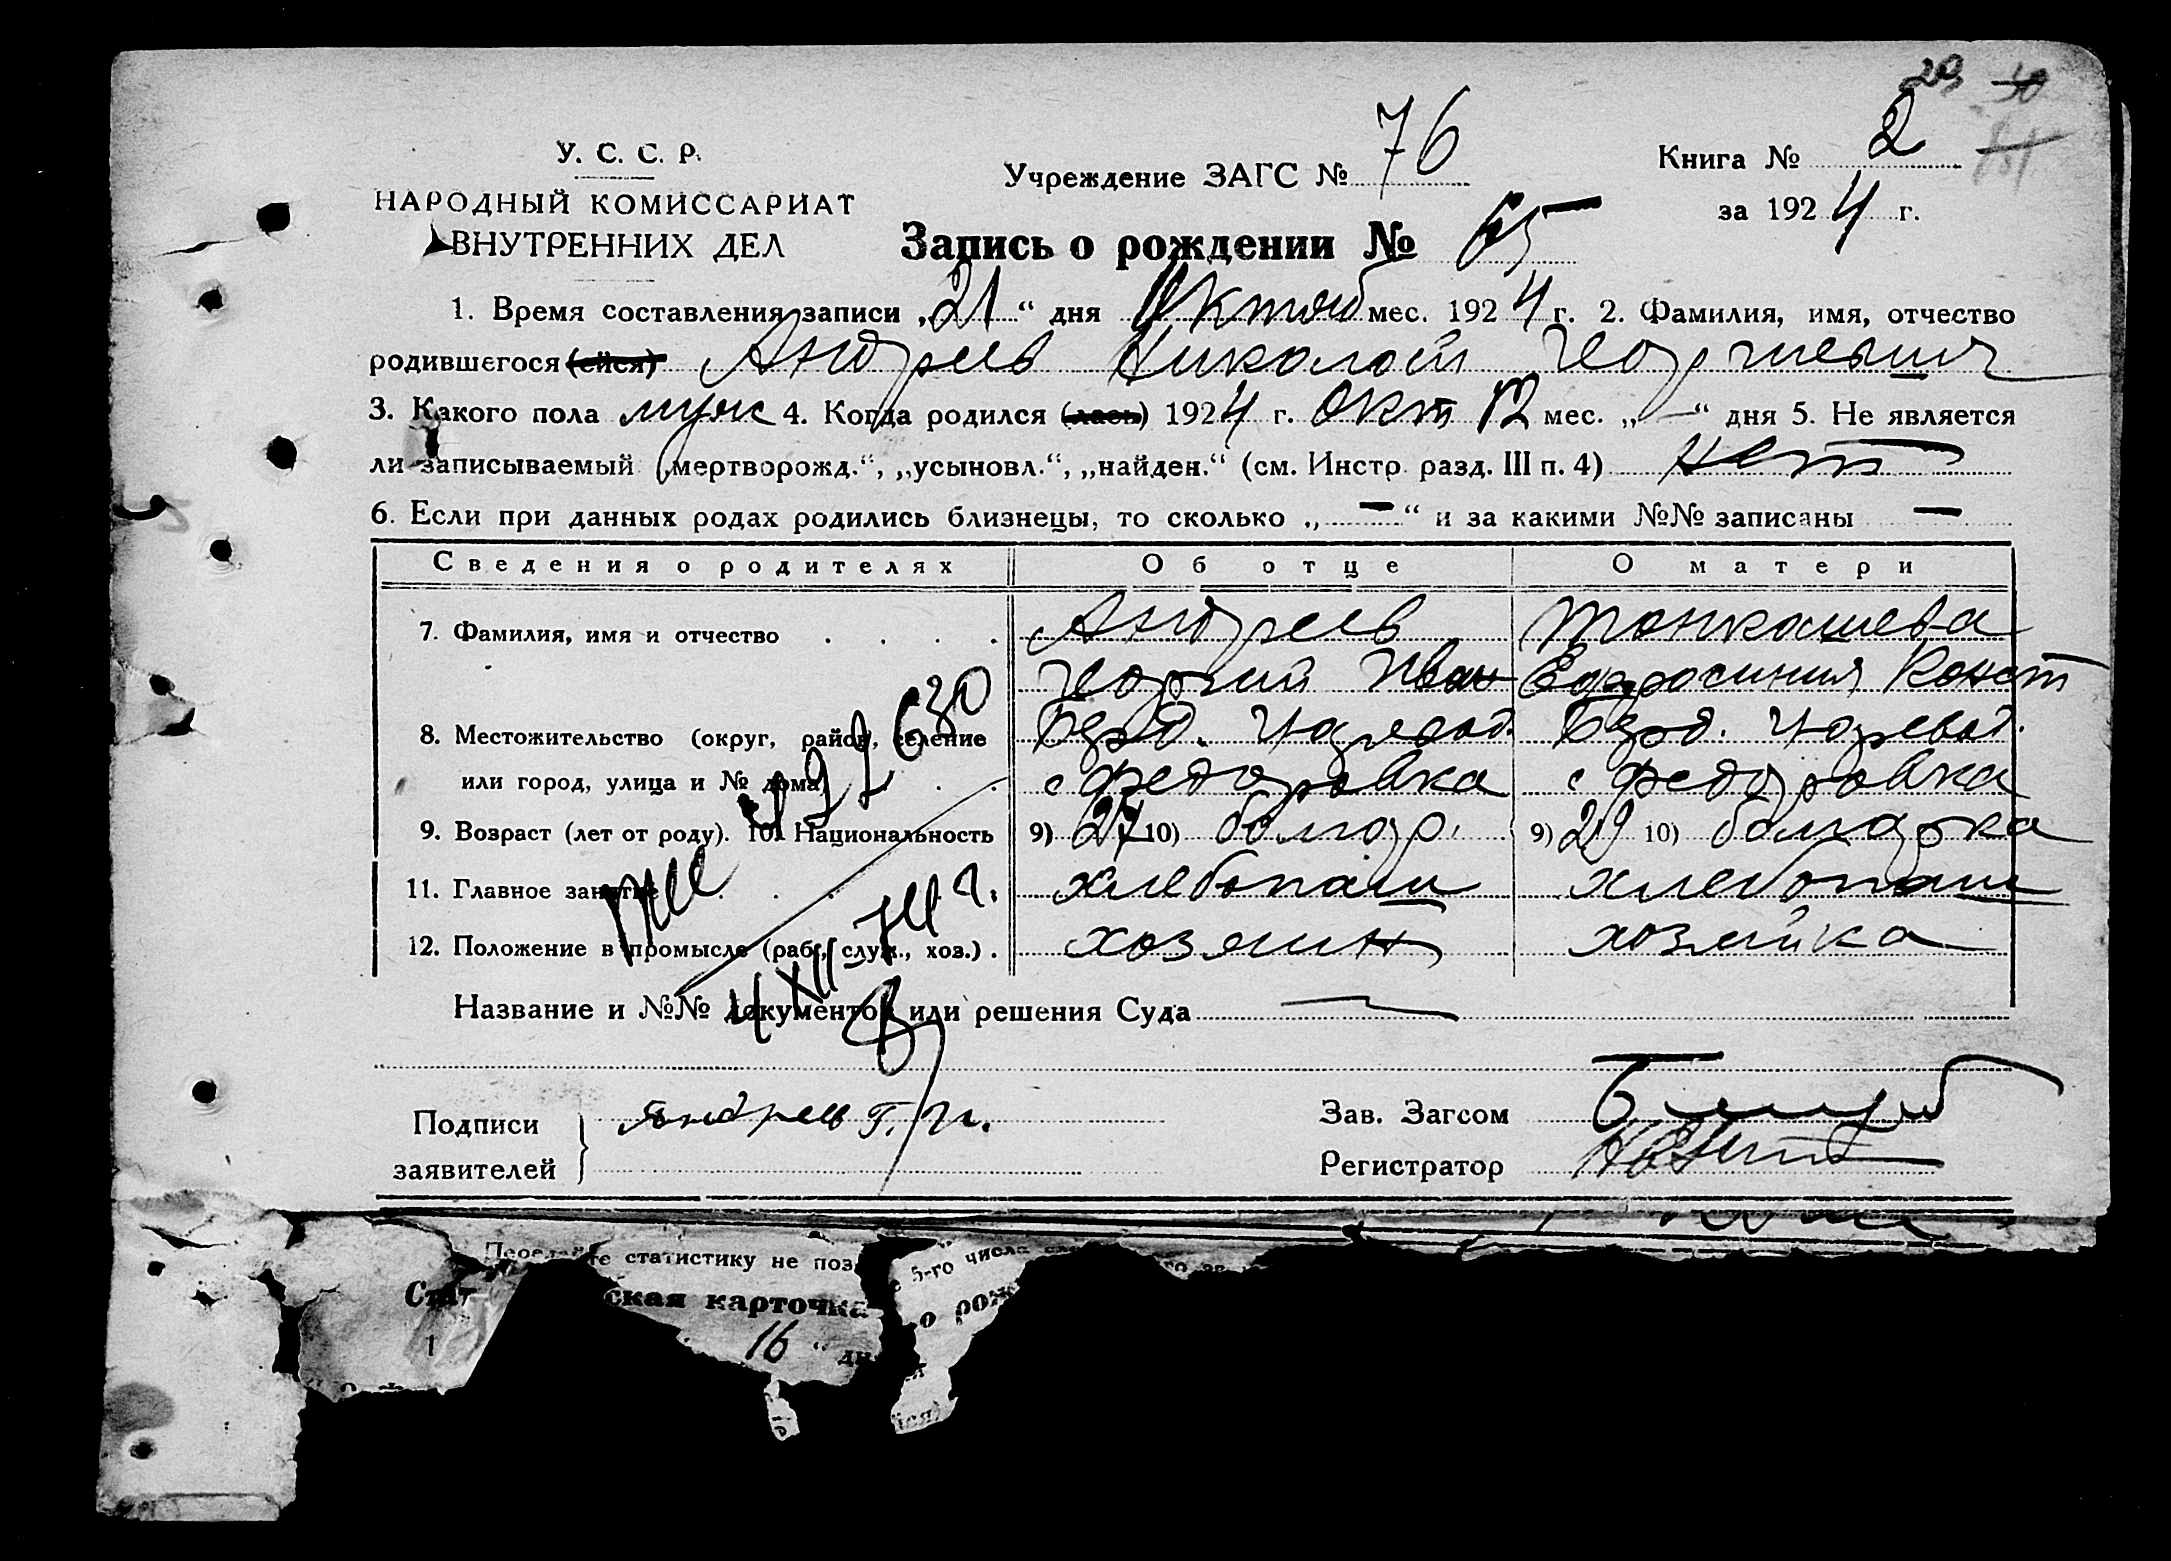 29
У. С. С. Р.
НАРОДНЫЙ КОМИССАРИАТ
ВНУТРЕННИХ ДЕЛ
Учреждение ЗАГС № 76
Книга № 2
за 1924 г.
Запись о рождении № 65
1. Время составления записи „21“ дня Октяб мес. 1924 г. 2. Фамилия, имя, отчество
родившегося (ейся) Андреев Николай Георгиевич
3. Какого пола муж 4. Когда родился (лась) 1924 г. Окт 12 мес. „—“ дня 5. Не является
ли записываемый „мертворожд.“, „усыновл.“, „найден.“ (см. Инстр. разд. III п. 4) нет
6. Если при данных родах родились близнецы, то сколько „—“ и за какими №№ записаны —
Сведения о родителях Об отце О матери
7. Фамилия, имя и отчество . . . . Андреев Танкашева
Георгий Иван Ефросиния Конст
8. Местожительство (округ, район, селение Берд. Царевод. Берд. Царевод.
или город, улица и № дома) . . с Федоровка с Федоровка
9. Возраст (лет от роду). 10. Национальность 9) 27 10) болгар. 9) 29 10) болгарка
11. Главное занятие . . . . хлебопаш хлебопаш
12. Положение в промысле (раб., служ., хоз.) . хозяин хозяйка
Название и №№ документов или решения Суда —
Подписи заявителей } Андреев Г. И.
Зав. Загсом
Регистратор
те статистику не поз
5-го числа
Стат ская карточка о рож
1 16 “ дн